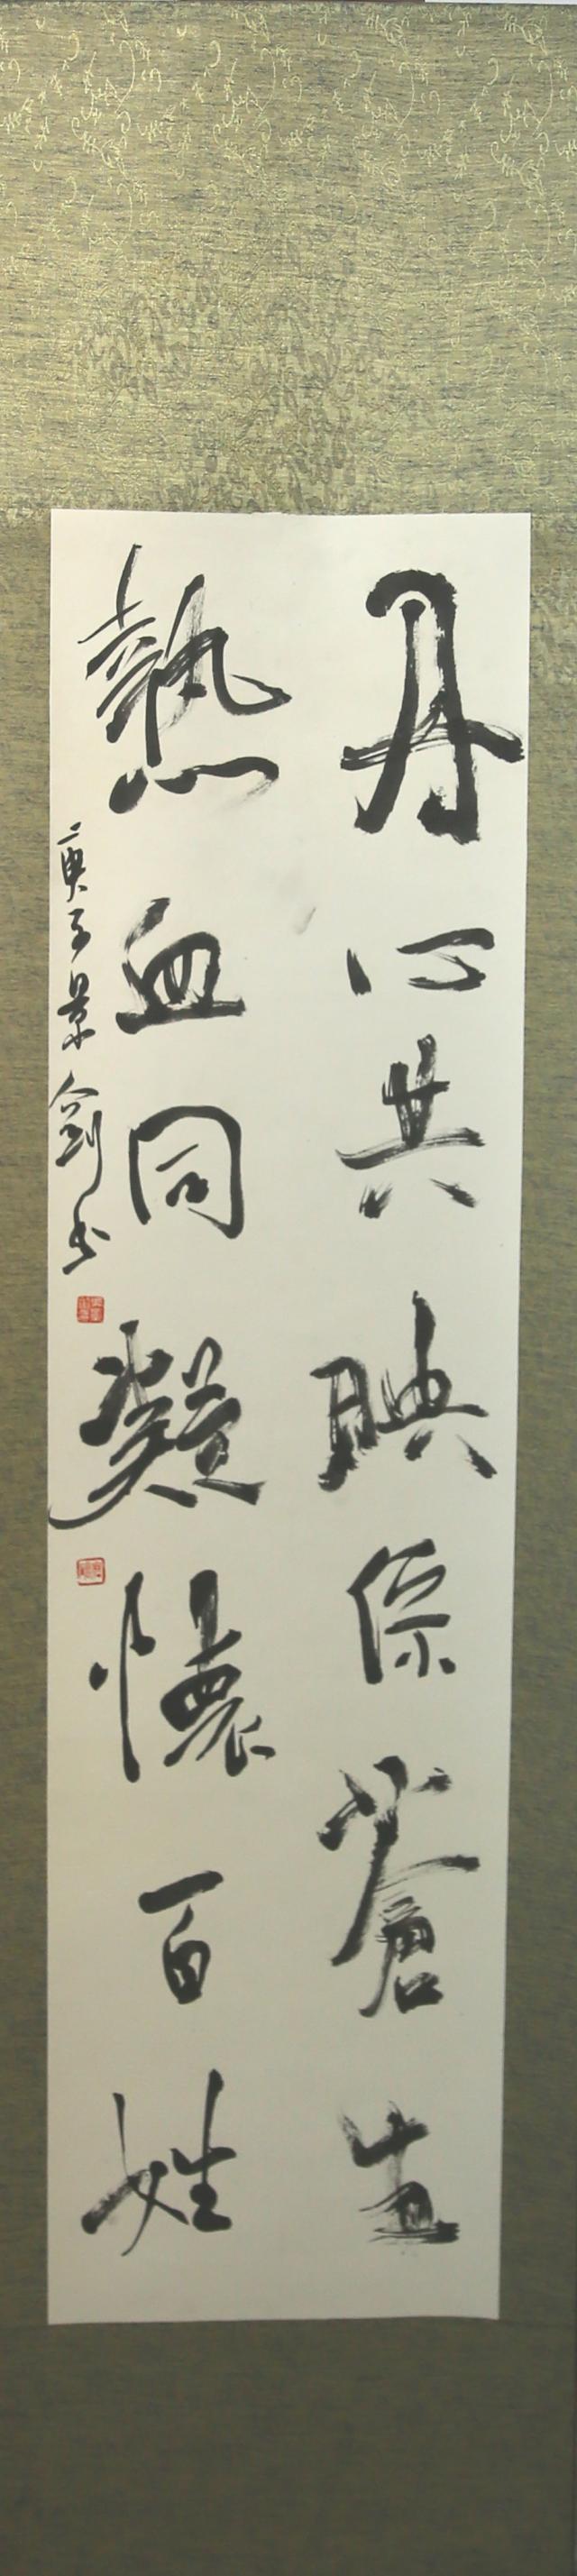 丹心共映保蒼生
熱血同凝懷百姓
庚子景劍书